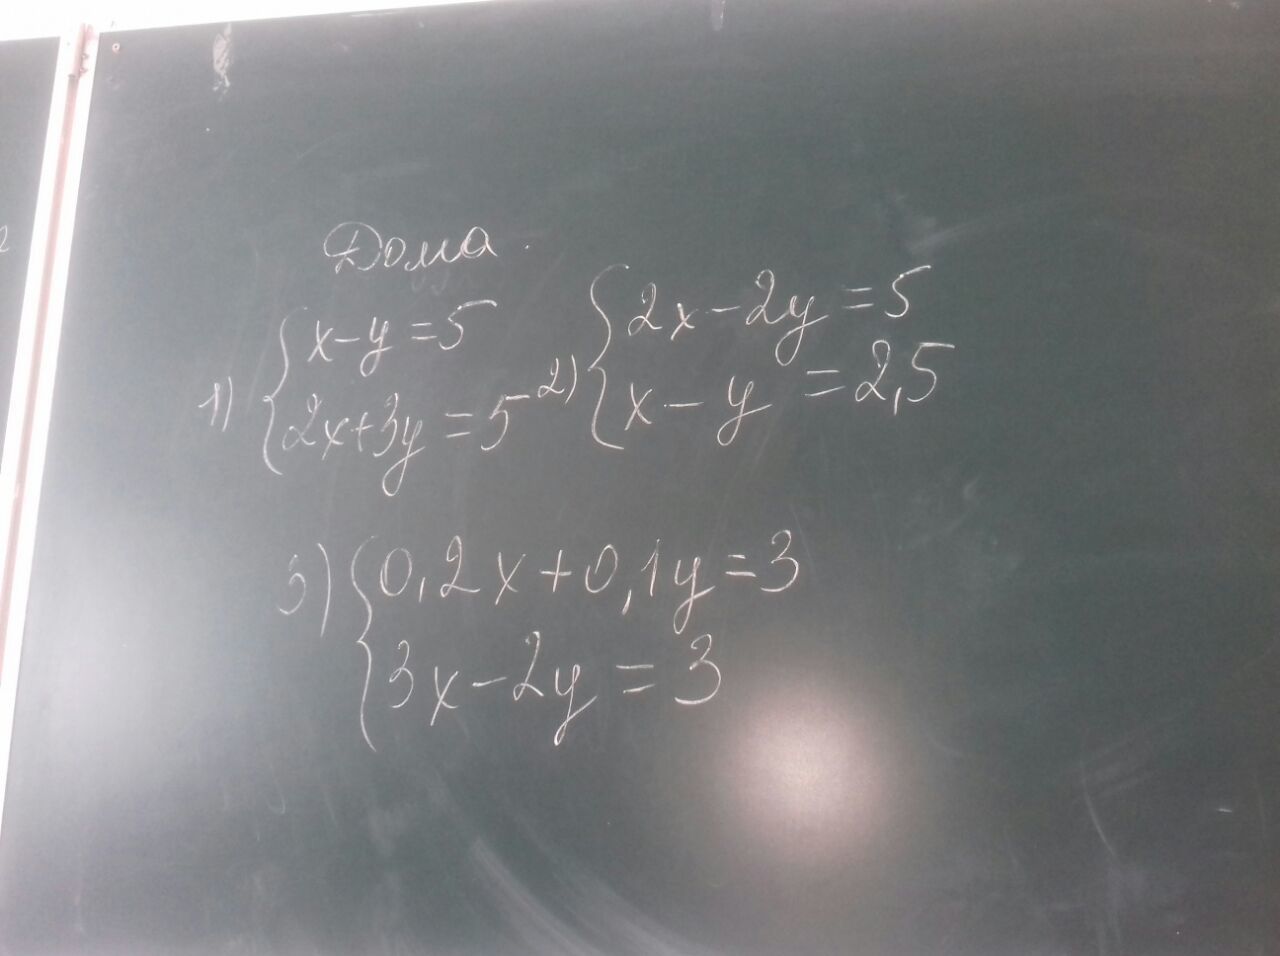 Дома.
1) { x-y=5
2x+3y=5
2) { 2x-2y=5
x-y=2,5
3) { 0,2x+0,1y=3
3x-2y=3